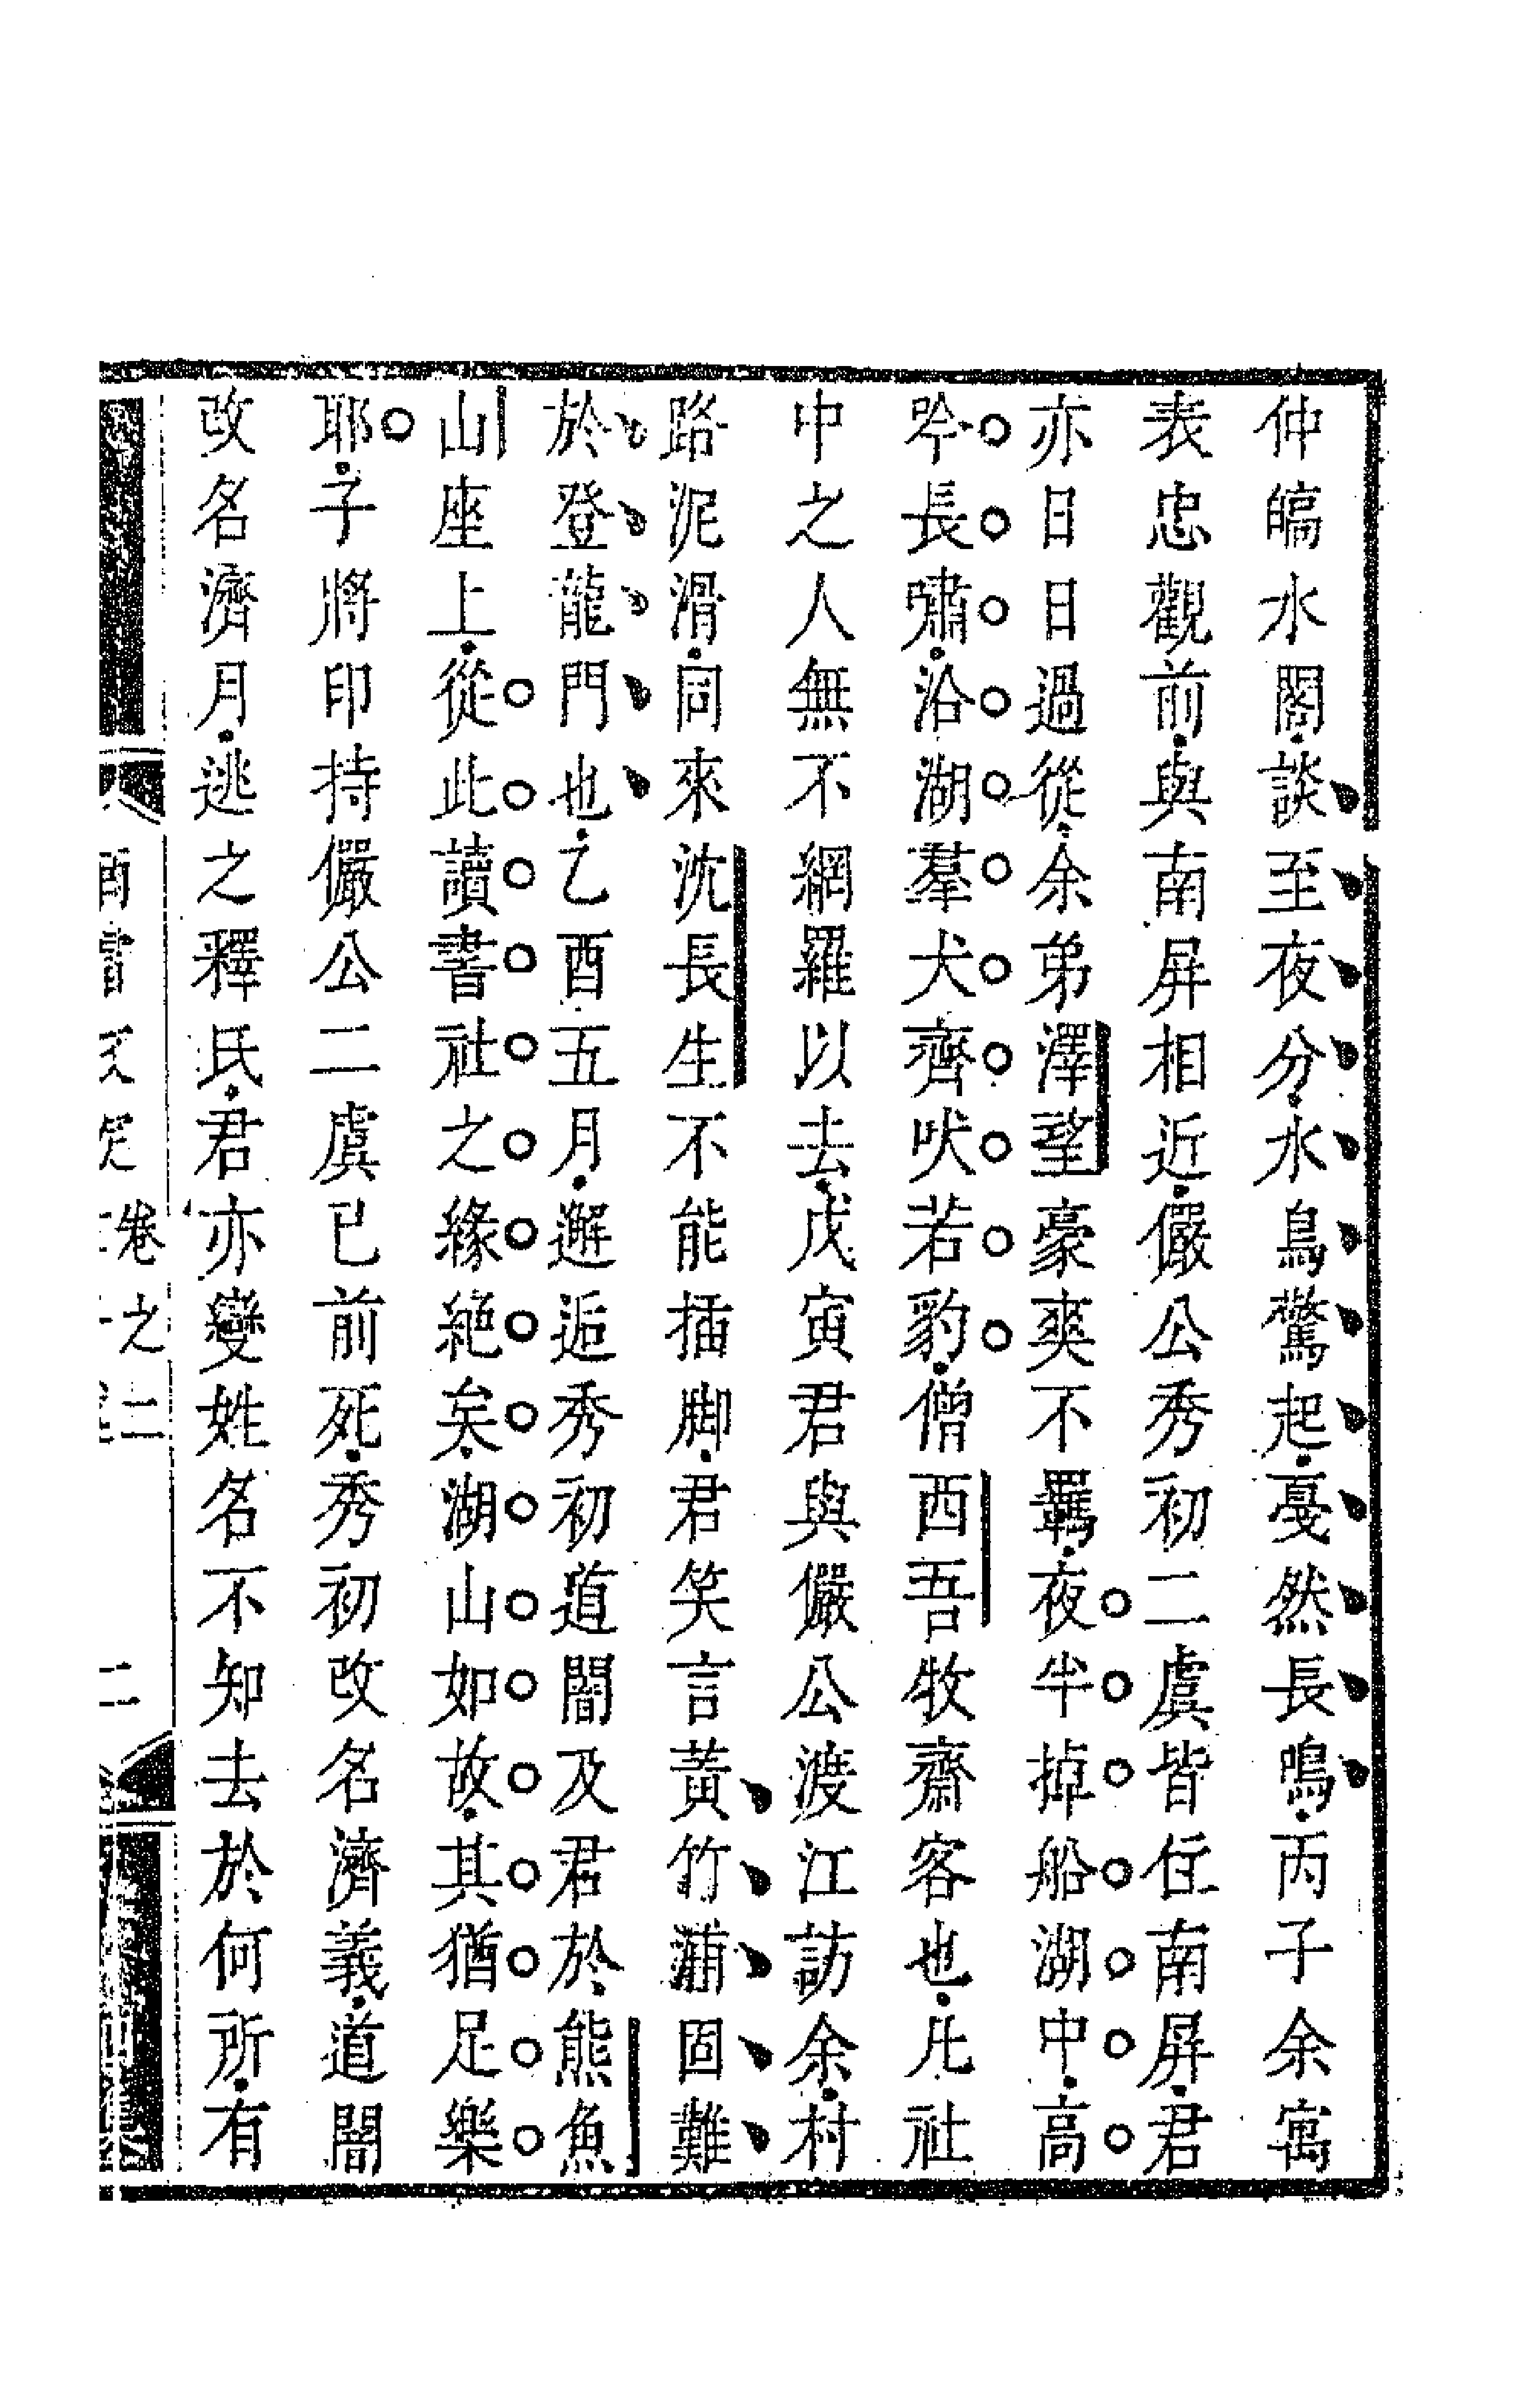 仲皜水閣談至夜分水鳥驚起戞然長鳴丙子余寓
表忠觀前與南屏相近儼公秀初二虞皆住南屏君
亦日日過從余弟澤望豪爽不羈夜半掉船湖中高
吟長嘯沿湖羣犬齊吠若豹僧西吾牧齋客也凡社
中之人無不網羅以去戊寅君與儼公渡江訪余村
路泥滑同來沈長生不能插脚君笑言黃竹浦固難
於登龍門也乙酉五月邂逅秀初道闇及君於熊魚
山座上從此讀書社之緣絶矣湖山如故其猶足樂
耶子將印持儼公二虞已前死秀初改名濟義道闇
改名濟月逃之釋氏君亦變姓名不知去於何所有
卷之二
二